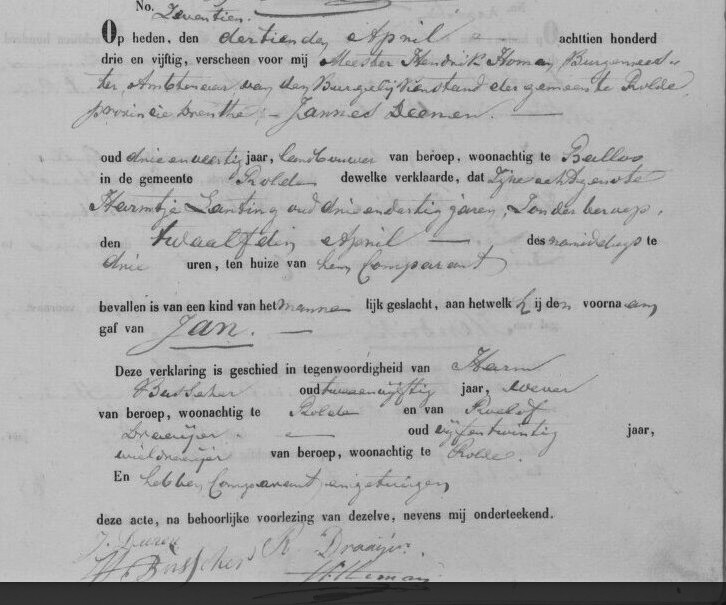 No.
Zeventien.
Op heden, den dertienden April achttien honderd
drie en vijftig, verscheen voor mij Meester Hendrik Homan, Burgemees-
ter, Ambtenaar van den Burgerlijken stand der gemeente Rolde,
provincie Drenthe, Jannes Deenen.
oud drie en veertig jaar, landbouwer van beroep, woonachtig te Balloo
in de gemeente Rolde dewelke verklaarde, dat Zijne echtgenote
Harmtje Lanting oud drie en dertig jaren, Zonder beroep,
den twaalfden April des namiddags te
drie uren, ten huize van hem Comparant
bevallen is van een kind van het manne lijk geslacht, aan hetwelk hij den voornaam
gaf van Jan.
Deze verklaring is geschied in tegenwoordigheid van Harm
Busscher oud twee en vijftig jaar, wever
van beroep, woonachtig te Rolde en van Roelof
Draaijer oud vijfentwintig jaar,
wieldraaijer van beroep, woonachtig te Rolde.
En hebben Comparant en getuigen
deze acte, na behoorlijke voorlezing van dezelve, nevens mij onderteekend.
H Busscher R Draaijer.
H Homan